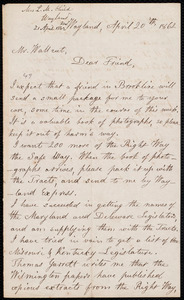 Mrs L. M. Child
Wayland
21 April 1861
Wayland, April 20th, 1861
Mr. Wallcut,
Dear Friend,
I expect that a friend in Brookline will
send a small package for me to your
care, some time in the course of this week.
It is a valuable book of photographs.
put it out of harm's way.
I want 200 more of the Right Way
the Safe Way. When the book of photo-
graphs arrives please pack it up with
the Tracts, and send to me by Way-
land Express.
I have succeeded in getting the names of
the Maryland and Delaware Legislatures,
and am supplying them with the Tracts.
I have tried in vain to get a list of the
Missouri & Kentucky Legislature.
Thomas Garrett wrote me that the
Wilmington papers have published
copious extracts from the Right Way,